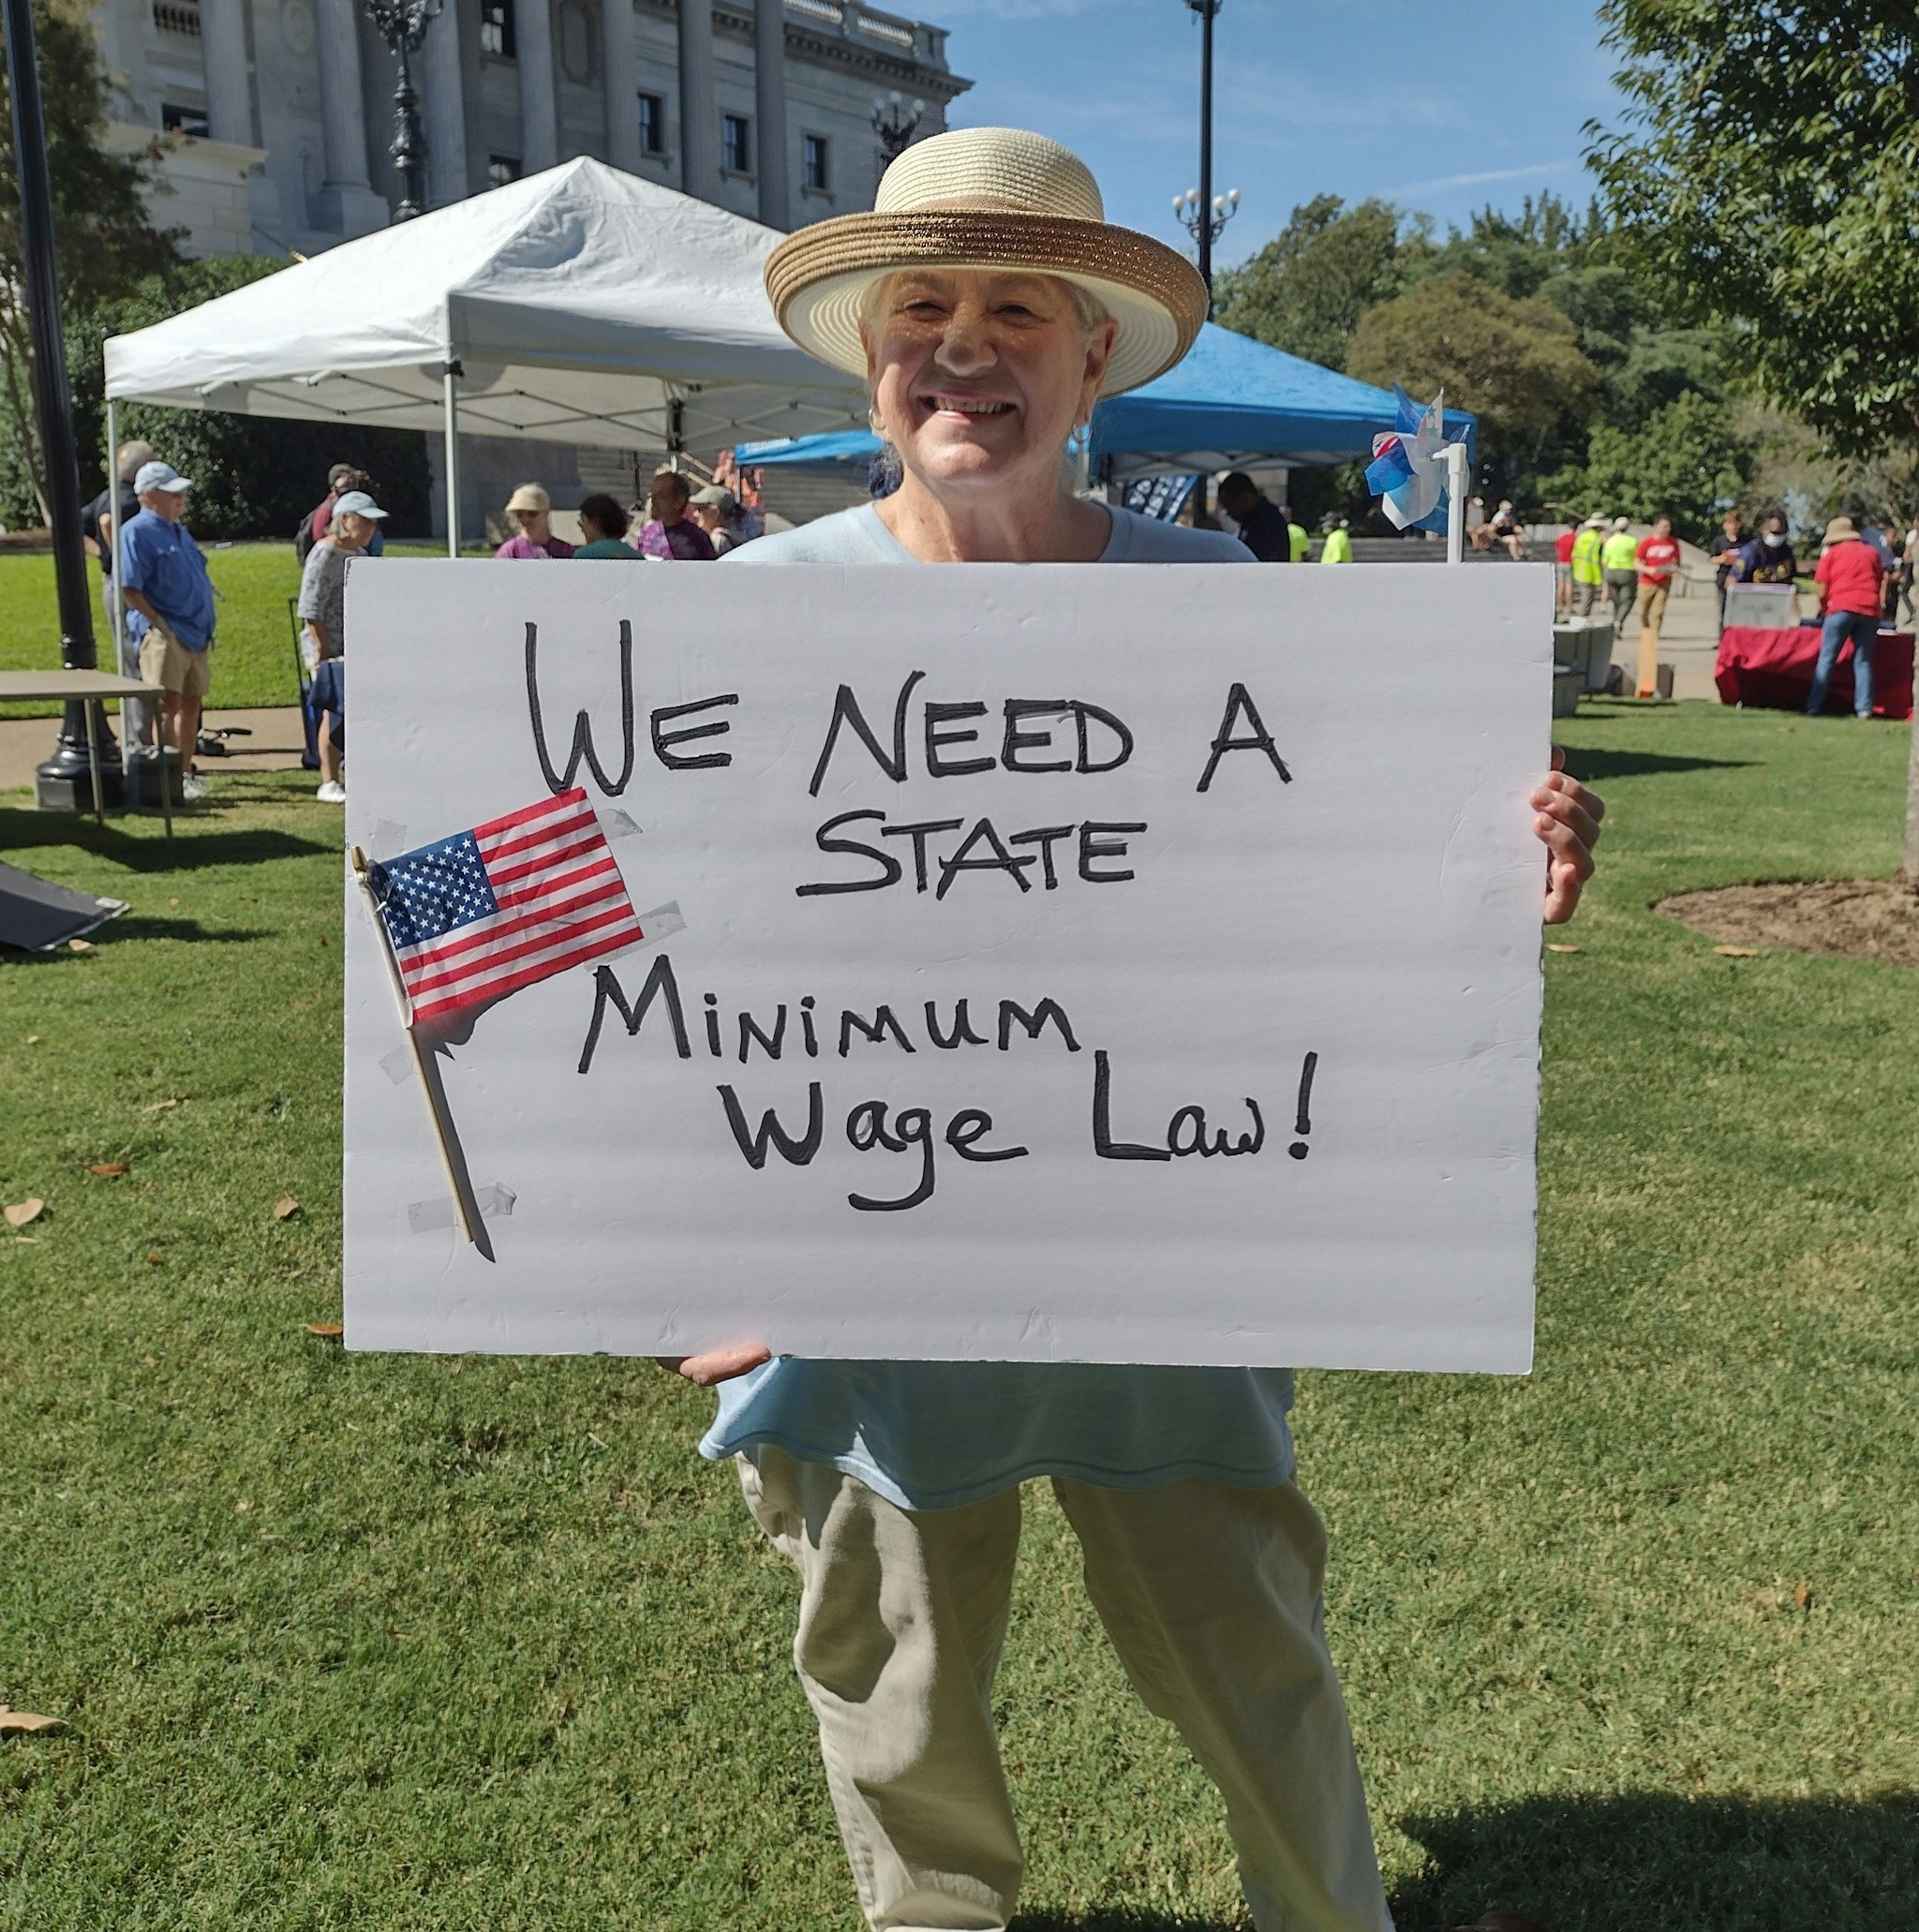 WE NEED A
STATE
MINIMUM
Wage Law!